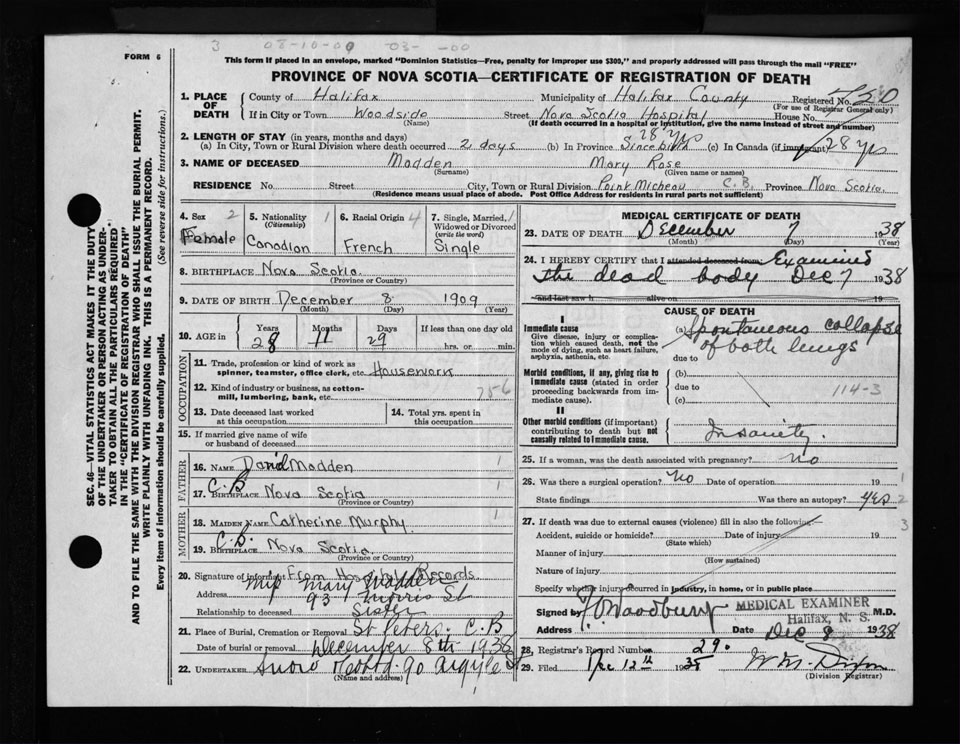 3 08-10-00 03- -00
FORM 6
This form if placed in an envelope, marked "Dominion Statistics—Free, penalty for improper use $300," and properly addressed will pass through the mail "FREE"
PROVINCE OF NOVA SCOTIA—CERTIFICATE OF REGISTRATION OF DEATH
SEC. 46—VITAL STATISTICS ACT MAKES IT THE DUTY
OF THE UNDERTAKER OR PERSON ACTING AS UNDER-
TAKER TO OBTAIN ALL THE PARTICULARS REQUIRED
IN THE "CERTIFICATE OF REGISTRATION OF DEATH"
AND TO FILE THE SAME WITH THE DIVISION REGISTRAR WHO SHALL ISSUE THE BURIAL PERMIT.
WRITE PLAINLY WITH UNFADING INK. THIS IS A PERMANENT RECORD.
Every item of information should be carefully supplied. (See reverse side for instructions.)
1. PLACE OF DEATH County of Halifax Municipality of Halifax County Registered No.
(For use of Registrar General only)
If in City or Town Woodside Street Nova Scotia Hospital House No.
(Name) (If death occurred in a hospital or institution, give the name instead of street and number)
2. LENGTH OF STAY (in years, months and days) 28 yrs
(a) In City, Town or Rural Division where death occurred 21 days (b) In Province Since birth (c) In Canada (if immigrant) 28 yrs
3. NAME OF DECEASED Madden Mary Rose
(Surname) (Given name or names)
RESIDENCE No. Street City, Town or Rural Division Point Micheau C.B. Province Nova Scotia
(Residence means usual place of abode. Post Office Address for residents in rural parts not sufficient)
4. Sex 2 5. Nationality 1 (Citizenship) 6. Racial Origin 4 7. Single, Married, Widowed or Divorced (write the word) 1
Female Canadian French Single
8. BIRTHPLACE Nova Scotia
(Province or Country)
9. DATE OF BIRTH December 8 1909
(Month) (Day) (Year)
10. AGE in Years Months Days If less than one day old
28 11 29 hrs. or min.
OCCUPATION
11. Trade, profession or kind of work as
spinner, teamster, office clerk, etc. Housework
12. Kind of industry or business, as cotton-
mill, lumbering, bank, etc. 756
13. Date deceased last worked at this occupation
14. Total yrs. spent in this occupation
15. If married give name of wife
or husband of deceased
FATHER
16. NAME David Madden 1
17. BIRTHPLACE C.B Nova Scotia
(Province or Country)
MOTHER
18. MAIDEN NAME Catherine Murphy 1
19. BIRTHPLACE C.B. Nova Scotia
(Province or Country)
20. Signature of informant From Hospital Records
Miss Mary Madden
Address 93 Morris St
Relationship to deceased Sister
21. Place of Burial, Cremation or Removal St Peters. C.B
Date of burial or removal December 8th 1938
22. UNDERTAKER Snow 90 Argyle St
(Name and address)
MEDICAL CERTIFICATE OF DEATH
23. DATE OF DEATH December 7 1938
(Month) (Day) (Year)
24. I HEREBY CERTIFY that I attended deceased from Examined
the dead body Dec 7 1938
and last saw h alive on 19
CAUSE OF DEATH
I
Immediate cause
Give disease, injury or complica-
tion which caused death, not the
mode of dying, such as heart failure,
asphyxia, asthenia, etc.
(a) Spontaneous collapse
of both lungs
due to
Morbid conditions, if any, giving rise to
immediate cause (stated in order
proceeding backwards from im-
mediate cause).
(b)
due to 114-3
(c)
II
Other morbid conditions (if important)
contributing to death but not
causally related to immediate cause. Insanity.
25. If a woman, was the death associated with pregnancy? no
26. Was there a surgical operation? no Date of operation 19 1
State findings Was there an autopsy? yes 2
27. If death was due to external causes (violence) fill in also the following:— 3
Accident, suicide or homicide? Date of injury 19
(State which)
Manner of injury
(How sustained)
Nature of injury
Specify whether injury occurred in industry, in home, or in public place
Signed by F.O. Woodbury MEDICAL EXAMINER M.D.
Halifax, N. S.
Address Date Dec 9 1938
28. Registrar's Record Number 290
29. Filed Dec 12th 1938
(Division Registrar)